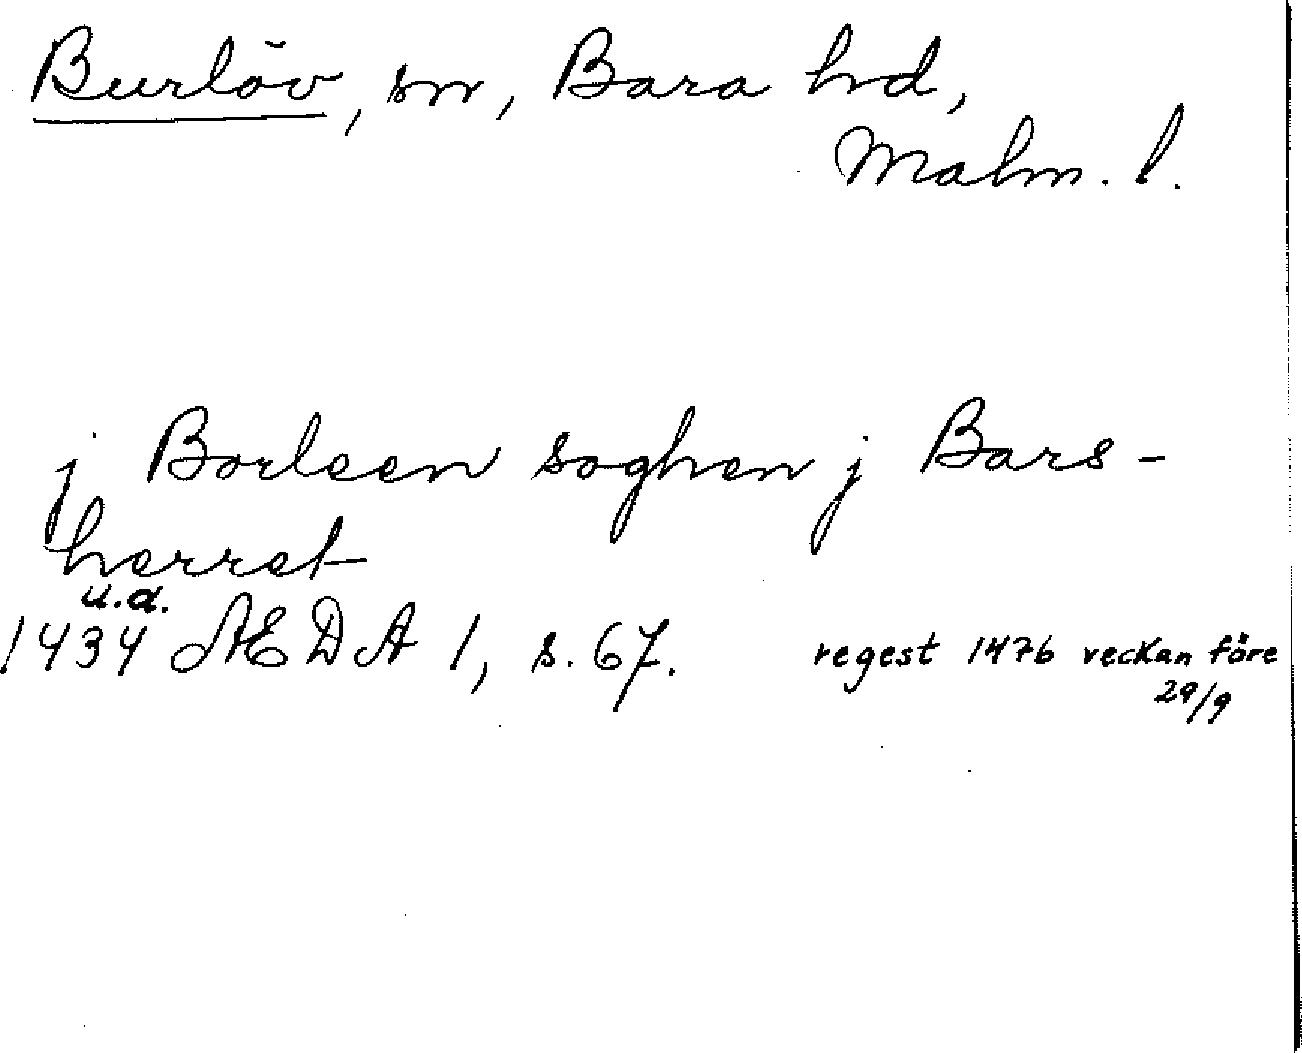 Burlöv, sn, Bara hd,
Malm. l.
j Borleen soghen j Bars-
herret
u.d.
1434 ÆDA 1, s. 67. regest 1476 veckan före
29/9